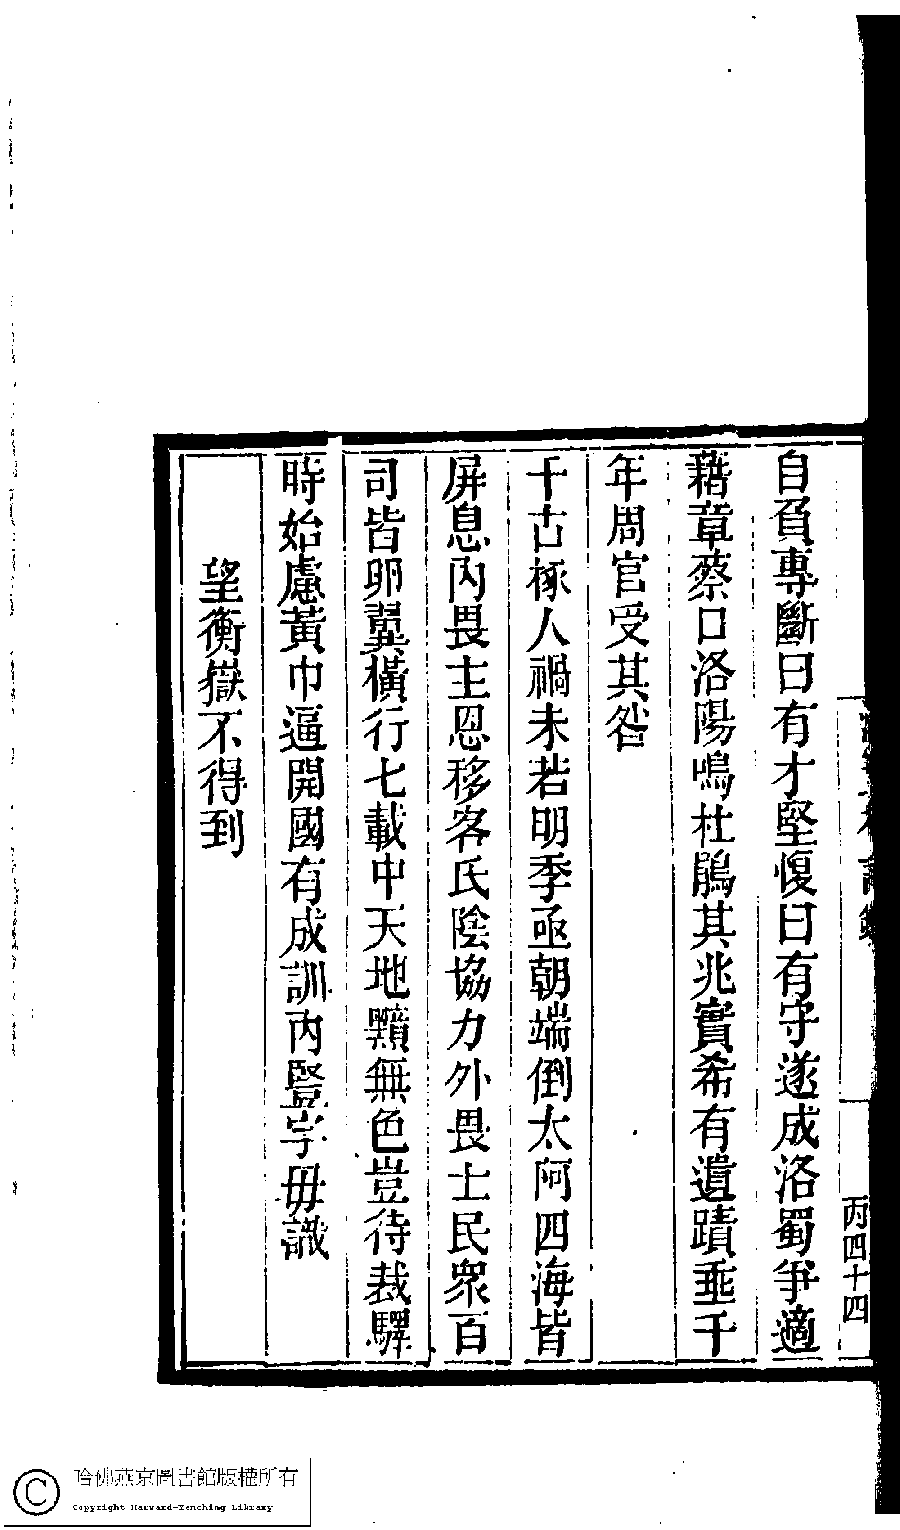 自負專斷曰有才堅愎曰有守遂成洛蜀爭適
藉章蔡口洛陽鳴杜鵑其兆實希有遺蹟垂千
年周官受其咎
千古椓人禍未若明季亟朝端倒太阿四海皆
屏息內畏主恩移客氏陰協力外畏士民眾百
司皆卵翼橫行七載中天地黯無色豈待裁驛
時始慮黃巾逼開國有成訓內豎字毋識
望衡嶽不得到
丙四十四
哈佛燕京圖書館版權所有
Copyright Harvard-Yenching Library